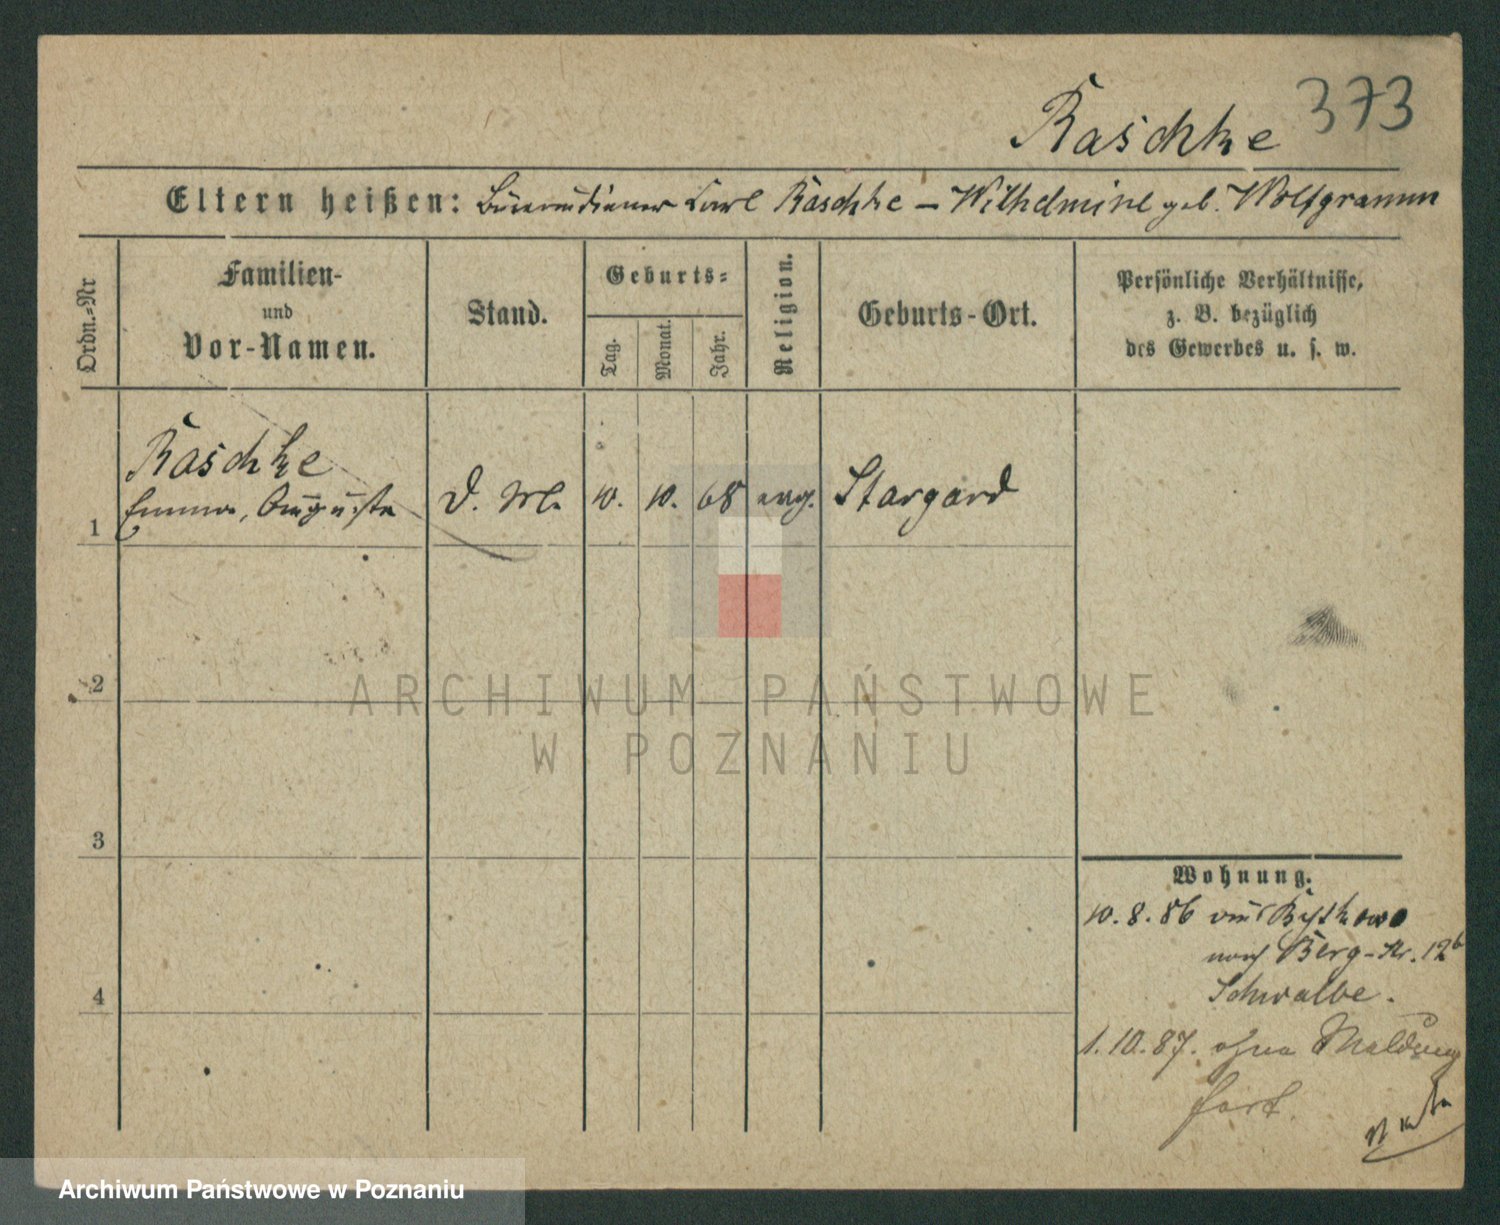 Raschke 373
Eltern heißen: Bureaudiener Karl Raschke – Wilhelmine geb. Wolfgramm
Ordn.-Nr
Familien-
und
Vor-Namen.
Stand.
Geburts-
Tag.
Monat.
Jahr.
Religion.
Geburts-Ort.
Persönliche Verhältnisse,
z. B. bezüglich
des Gewerbes u. s. w.
Raschke
1 Emma, Auguste D. Mr. 10. 10. 68 evg. Stargard
2
3
4
Wohnung.
10.8.86 aus
nach Berg-Str. 12b
Schwalbe.
1.10.87. ohne Meldung
fort.
ARCHIWUM PAŃSTWOWE
W POZNANIU
Archiwum Państwowe w Poznaniu